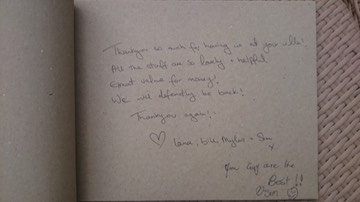 Thankyou so much for having us at your villa!
All the staff are so lovely + helpful
Great value for money!
We will defenitely be back!
Thankyou again!
Lana, & Sam
x
You guys are the
Best!!